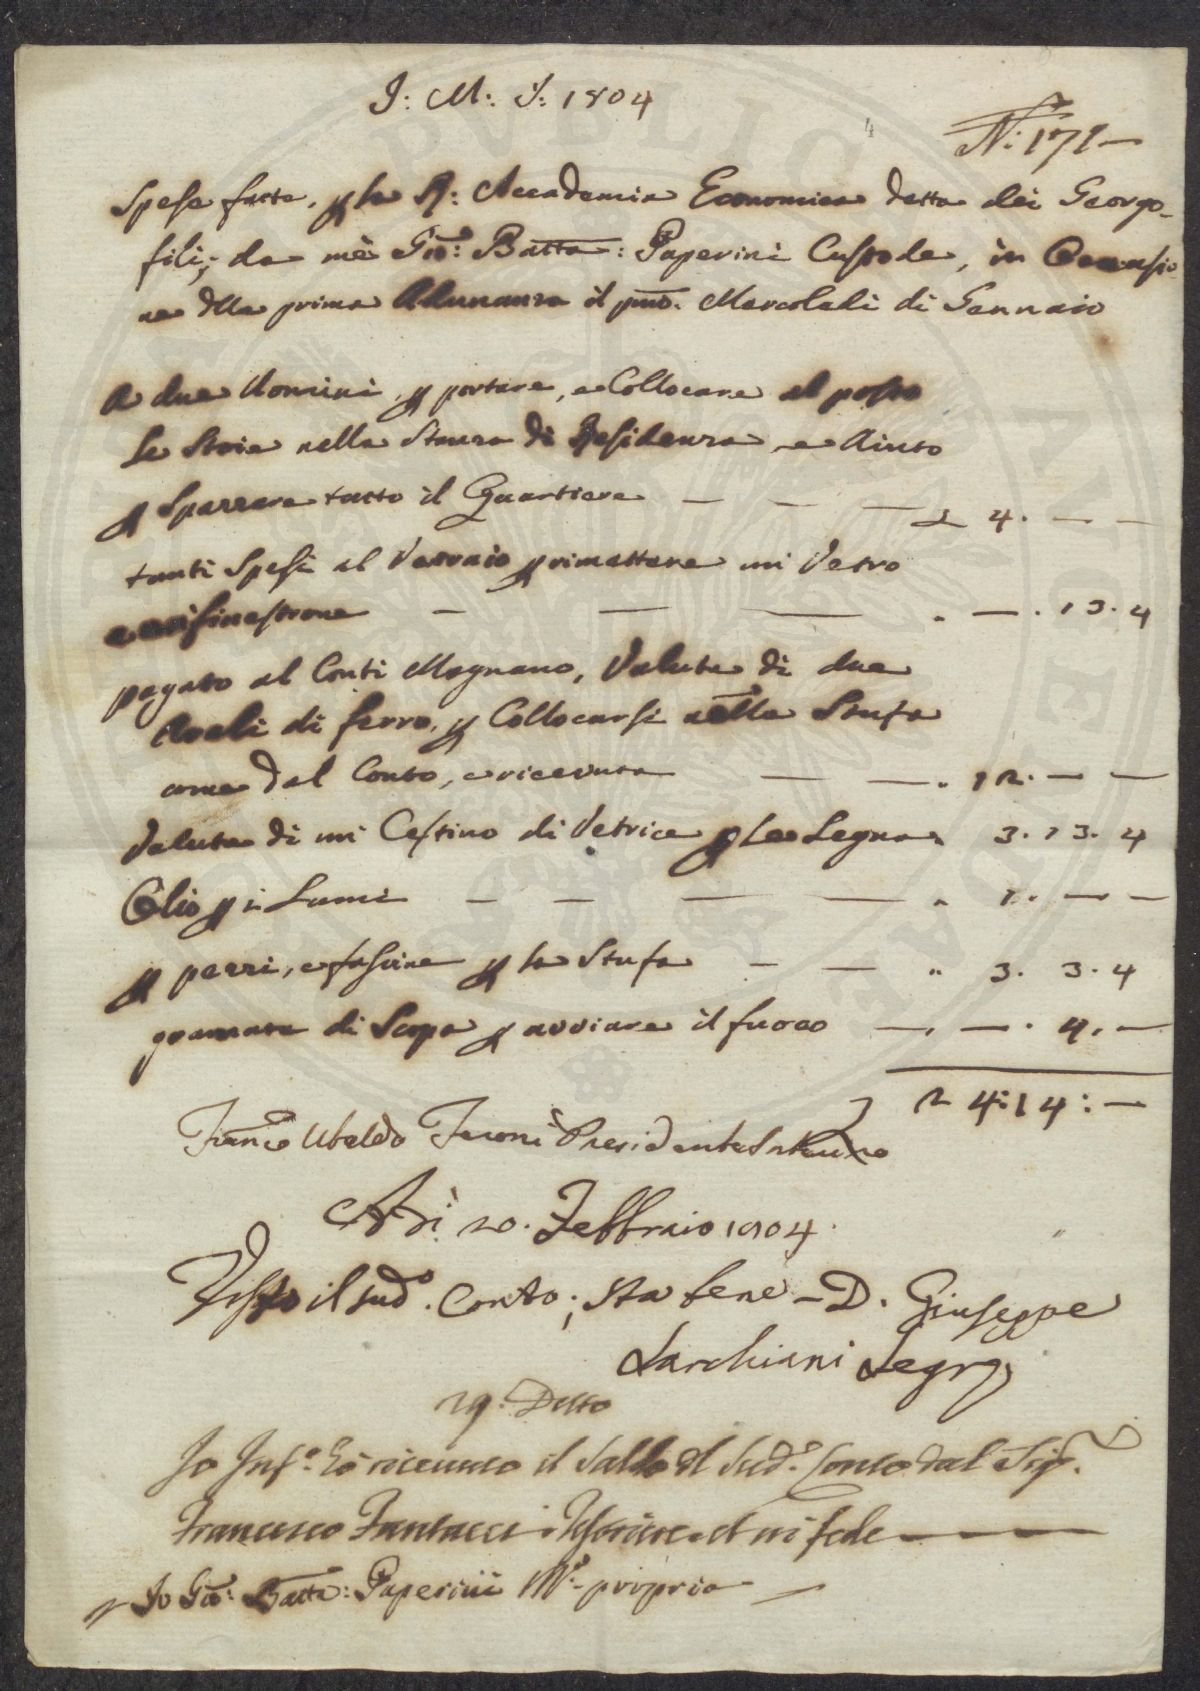 J: M: J: 1804
4
N: 171
Spese fatte, p la R: Accademia Economica detta dei Georgo-
fili; da me Gio: Batta: Paperini Custode, in Occasio
ne dlla prima Adunanza il pmo. Mercoledi di Gennaio
A due Uomini, p portare, e Collocare al posto
le Stoie nella Stanza di Residenza, e Aiuto
p Spazzare tutto il Quartiere — — — £ 4. — —
tanti Spesi al Vetraio p rimettere un Vetro
finestrone — — — . — . 13. 4
pagato al Conti Magnano, Valuta di due
di ferro, p Collocarsi nella Stufa
come dal Conto, e ricevuta — — . 12. — —
Valuta di un Cestino di Vetrice p le Legna . 3. 13. 4
Olio p i Lumi — — — — " 1. — —
p pezzi, e fascine p la Stufa — — " 3. 3. 4
granata di Scopa p avviare il fuoco — . — . 4. —
24:14: —
Franco Ubaldo Feroni Presidente
Adì 20. Febbraio 1804.
Visto il sudo. Conto; sta bene – D. Giuseppe
Sarchiani Segro
29. Detto
Io Info. hò ricevuto il Saldo dl Sudo. Conto dal Sigr.
Francesco Fantacci Tesoriere ed in fede
Io Gio: Batta: Paperini Mo. propria